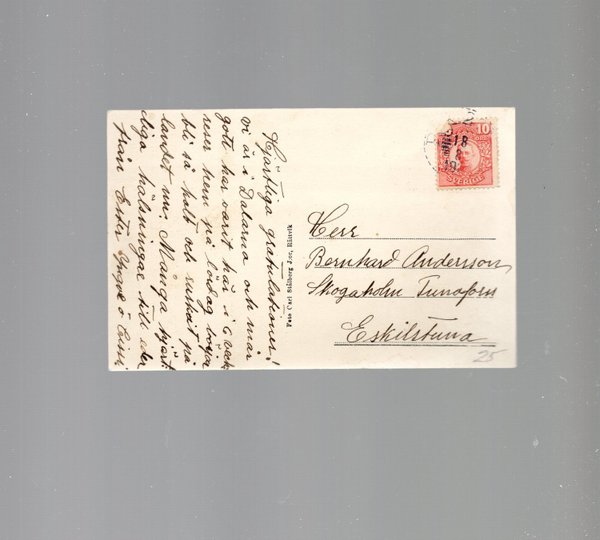 Hjärtliga gratulationer!
vi är i Dalarna och mår
gott har varit här i 6 veck
reser hem på lördag börja
bli så kalt och ruskat på
landet nu. Många hjärt
liga hälsningar till eder
från Ester Yngve o Cissi
Foto Carl Stålberg Jor, Rättvik
10
ÖRE
SVERIGE
18
Herr
Bernhard Andersson
Skogaholm Tunafors
Eskilstuna
25